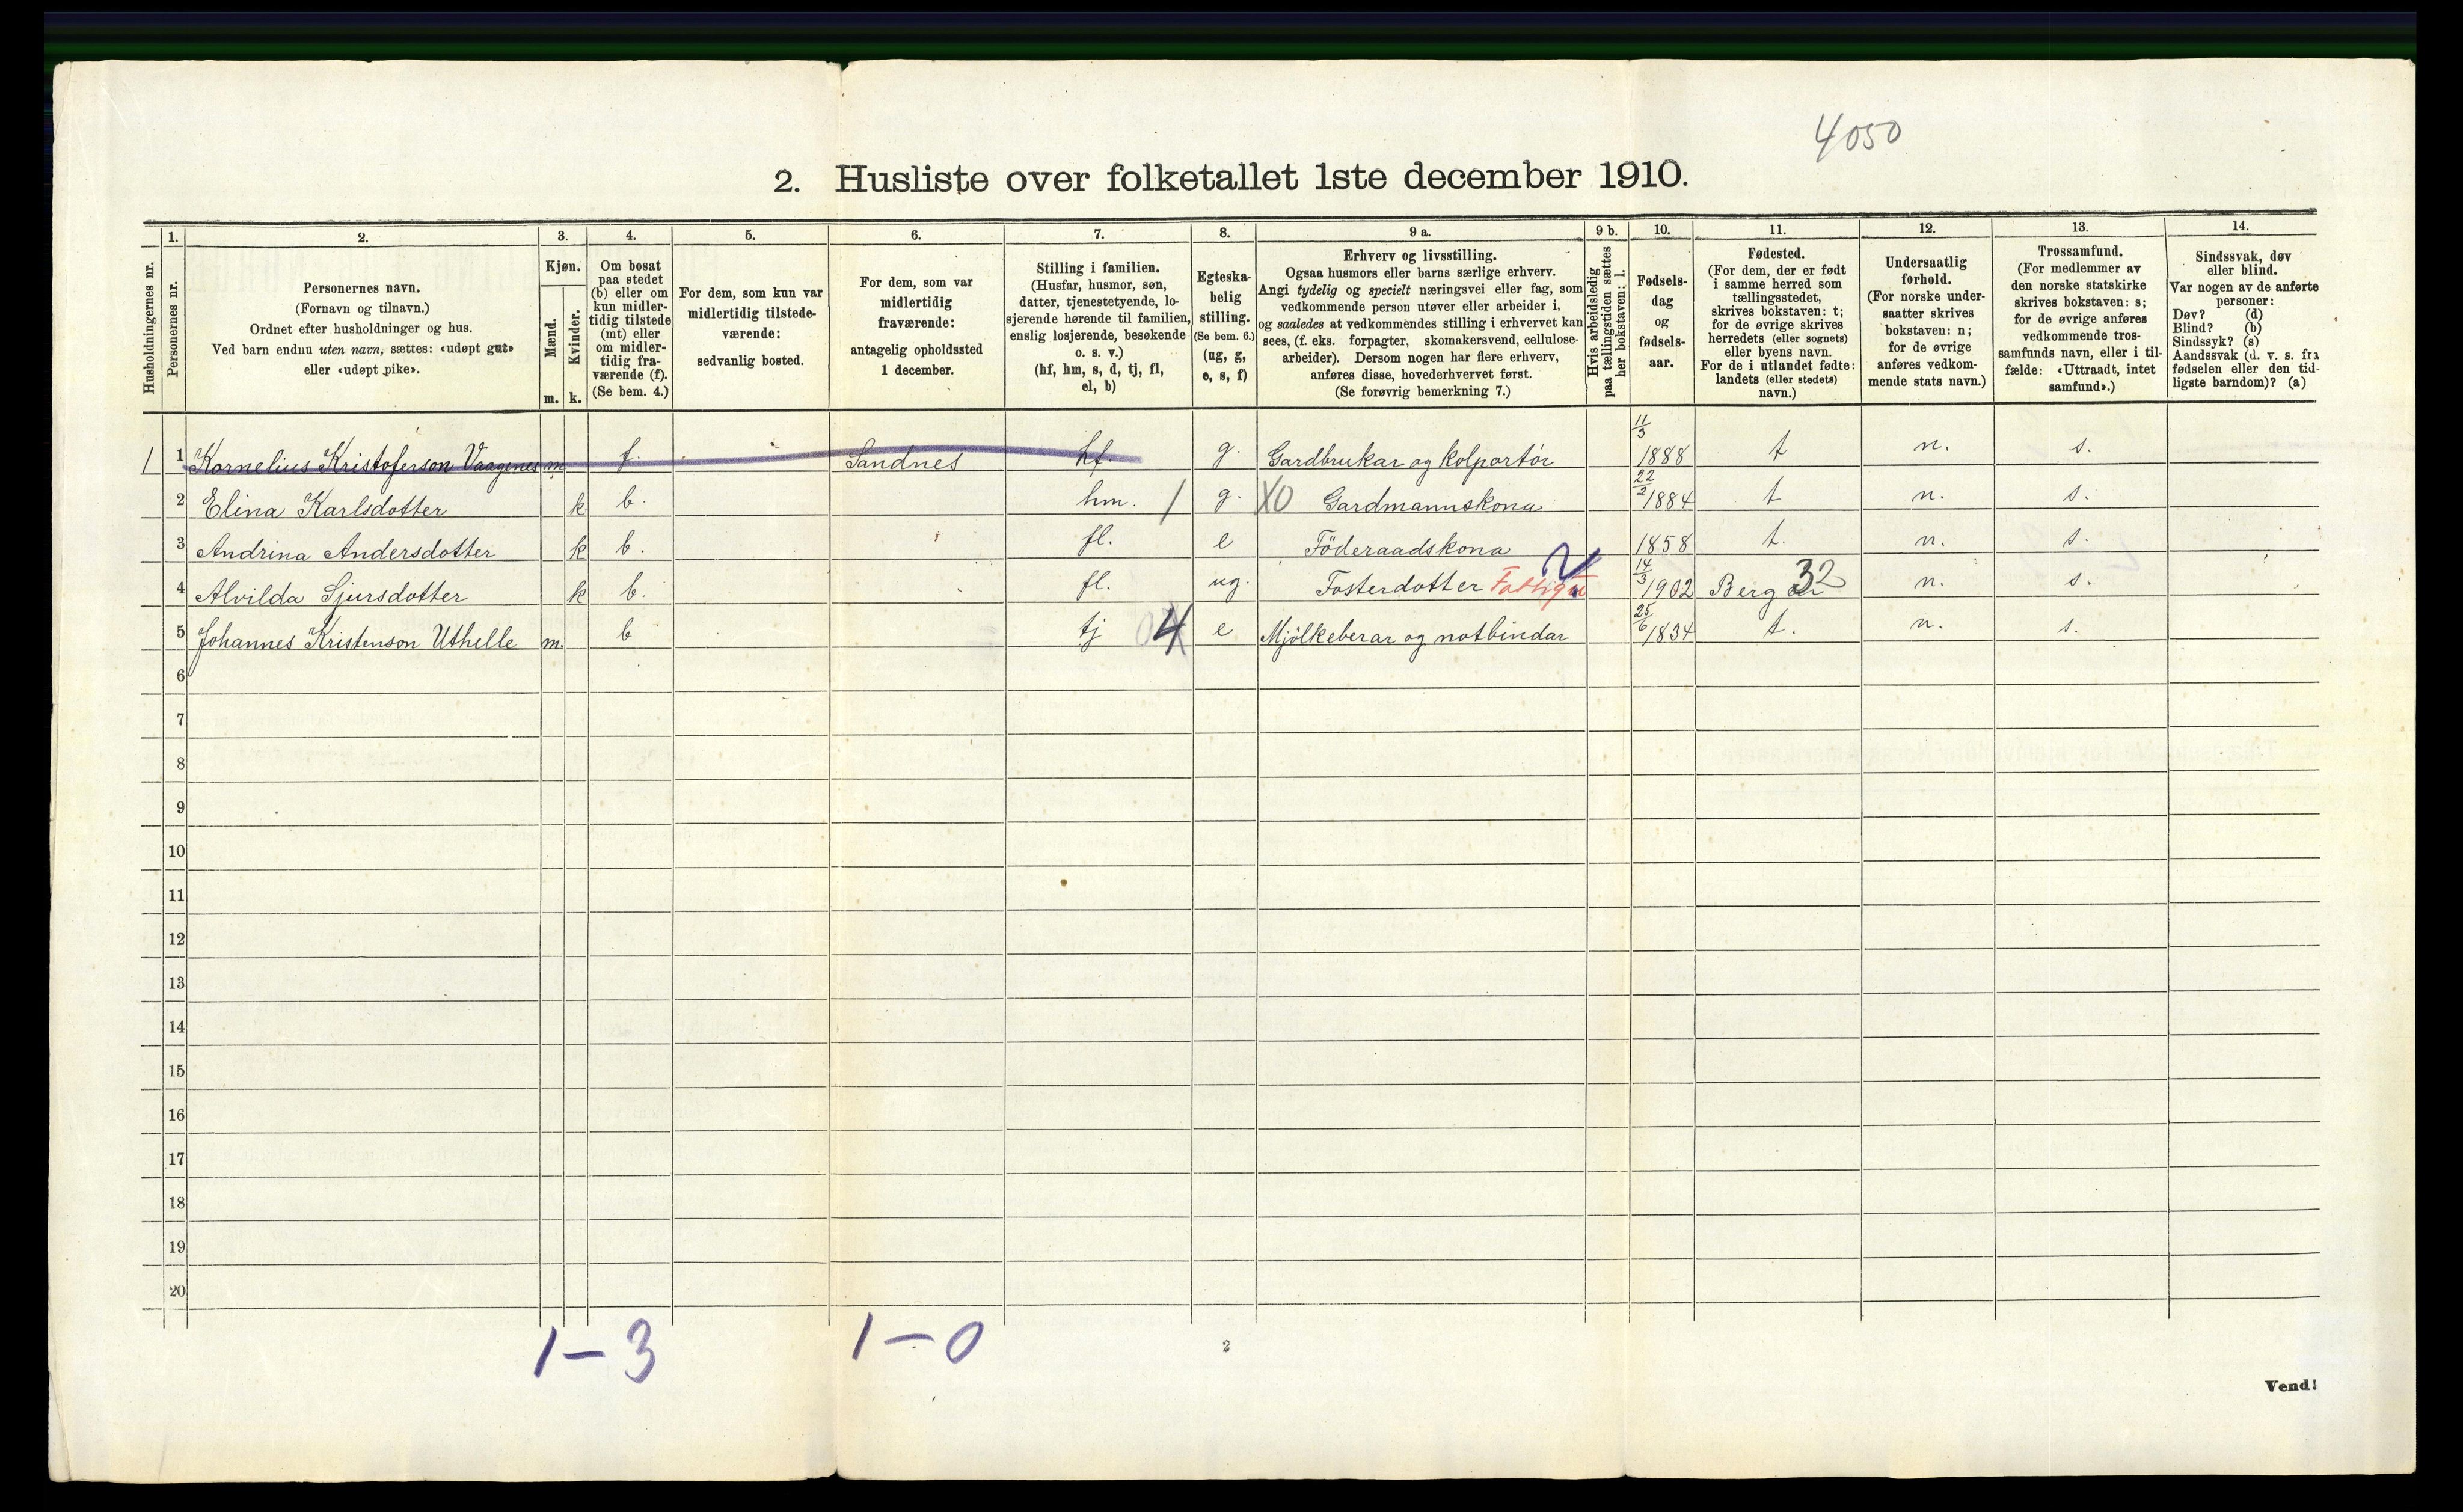 4050
2. Husliste over folketallet 1ste december 1910.
Husholdningernes nr.
1.
Personernes nr.
2.
Personernes navn.
(Fornavn og tilnavn.)
Ordnet efter husholdninger og hus.
Ved barn endnu uten navn, sættes: «udøpt gut»
eller «udøpt pike».
3.
Kjøn.
Mænd.
Kvinder.
m. k.
4.
Om bosat
paa stedet
(b) eller om
kun midler-
tidig tilstede
(mt) eller
om midler-
tidig fra-
værende (f).
(Se bem. 4.)
5.
For dem, som kun var
midlertidig tilstede-
værende:
sedvanlig bosted.
6.
For dem, som var
midlertidig
fraværende:
antagelig opholdssted
1 december.
7.
Stilling i familien.
(Husfar, husmor, søn,
datter, tjenestetyende, lo-
sjerende hørende til familien,
enslig losjerende, besøkende
o. s. v.)
(hf, hm, s, d, tj, fl,
el, b)
8.
Egteska-
belig
stilling.
(Se bem. 6.)
(ug, g,
e, s, f)
9 a.
Erhverv og livsstilling.
Ogsaa husmors eller barns særlige erhverv.
Angi tydelig og specielt næringsvei eller fag, som
vedkommende person utøver eller arbeider i,
og saaledes at vedkommendes stilling i erhvervet kan
sees, (f. eks. forpagter, skomakersvend, cellulose-
arbeider). Dersom nogen har flere erhverv,
anføres disse, hovederhvervet først.
(Se forøvrig bemerkning 7.)
9 b.
Hvis arbeidsledig
paa tællingstiden sættes
her bokstaven: l.
10.
Fødsels-
dag
og
fødsels-
aar.
11.
Fødested.
(For dem, der er født
i samme herred som
tællingsstedet,
skrives bokstaven: t;
for de øvrige skrives
herredets (eller sognets)
eller byens navn.
For de i utlandet fødte:
landets (eller stedets)
navn.)
12.
Undersaatlig
forhold.
(For norske under-
saatter skrives
bokstaven: n;
for de øvrige
anføres vedkom-
mende stats navn.)
13.
Trossamfund.
(For medlemmer av
den norske statskirke
skrives bokstaven: s;
for de øvrige anføres
vedkommende tros-
samfunds navn, eller i til-
fælde: «Uttraadt, intet
samfund».)
14.
Sindssvak, døv
eller blind.
Var nogen av de anførte
personer:
Døv? (d)
Blind? (b)
Sindssyk? (s)
Aandssvak (d. v. s. fra
fødselen eller den tid-
ligste barndom)? (a)
1 1 Kornelius Kristoferson Vaagenes m. f. Sandnes hf. g. Gardbrukar og kolportör 11/3 1888 t n. s.
2 Elina Karlsdotter k b. hm. 1 g. X0 Gardmannskona 22/2 1884 t n. s.
3 Andrina Andersdotter k b. fl. e Föderaadskona 1858 t. n. s.
4 Alvilda Sjursdotter k b. fl. ug. Fosterdotter 14/3 1902 Bergen 32 n. s.
5 Johannes Kristenson Uthelle m. b tj 4 e Mjölkeberar og notbindar 25/6 1834 t. n. s.
6
7
8
9
10
11
12
13
14
15
16
17
18
19
20
1–3 1–0
2
Vend!